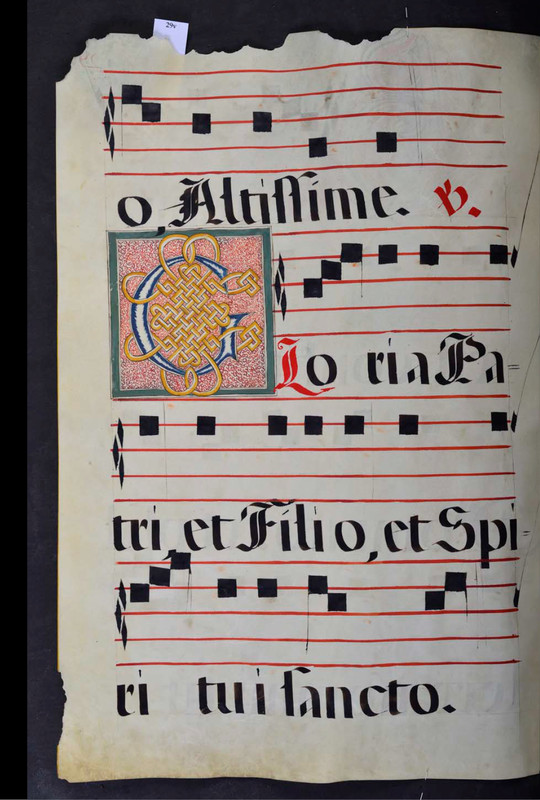 29v
o, Altiſſime. V.
GLo ria Pa=
tri, et Filio, et Spi=
ri tui ſancto.